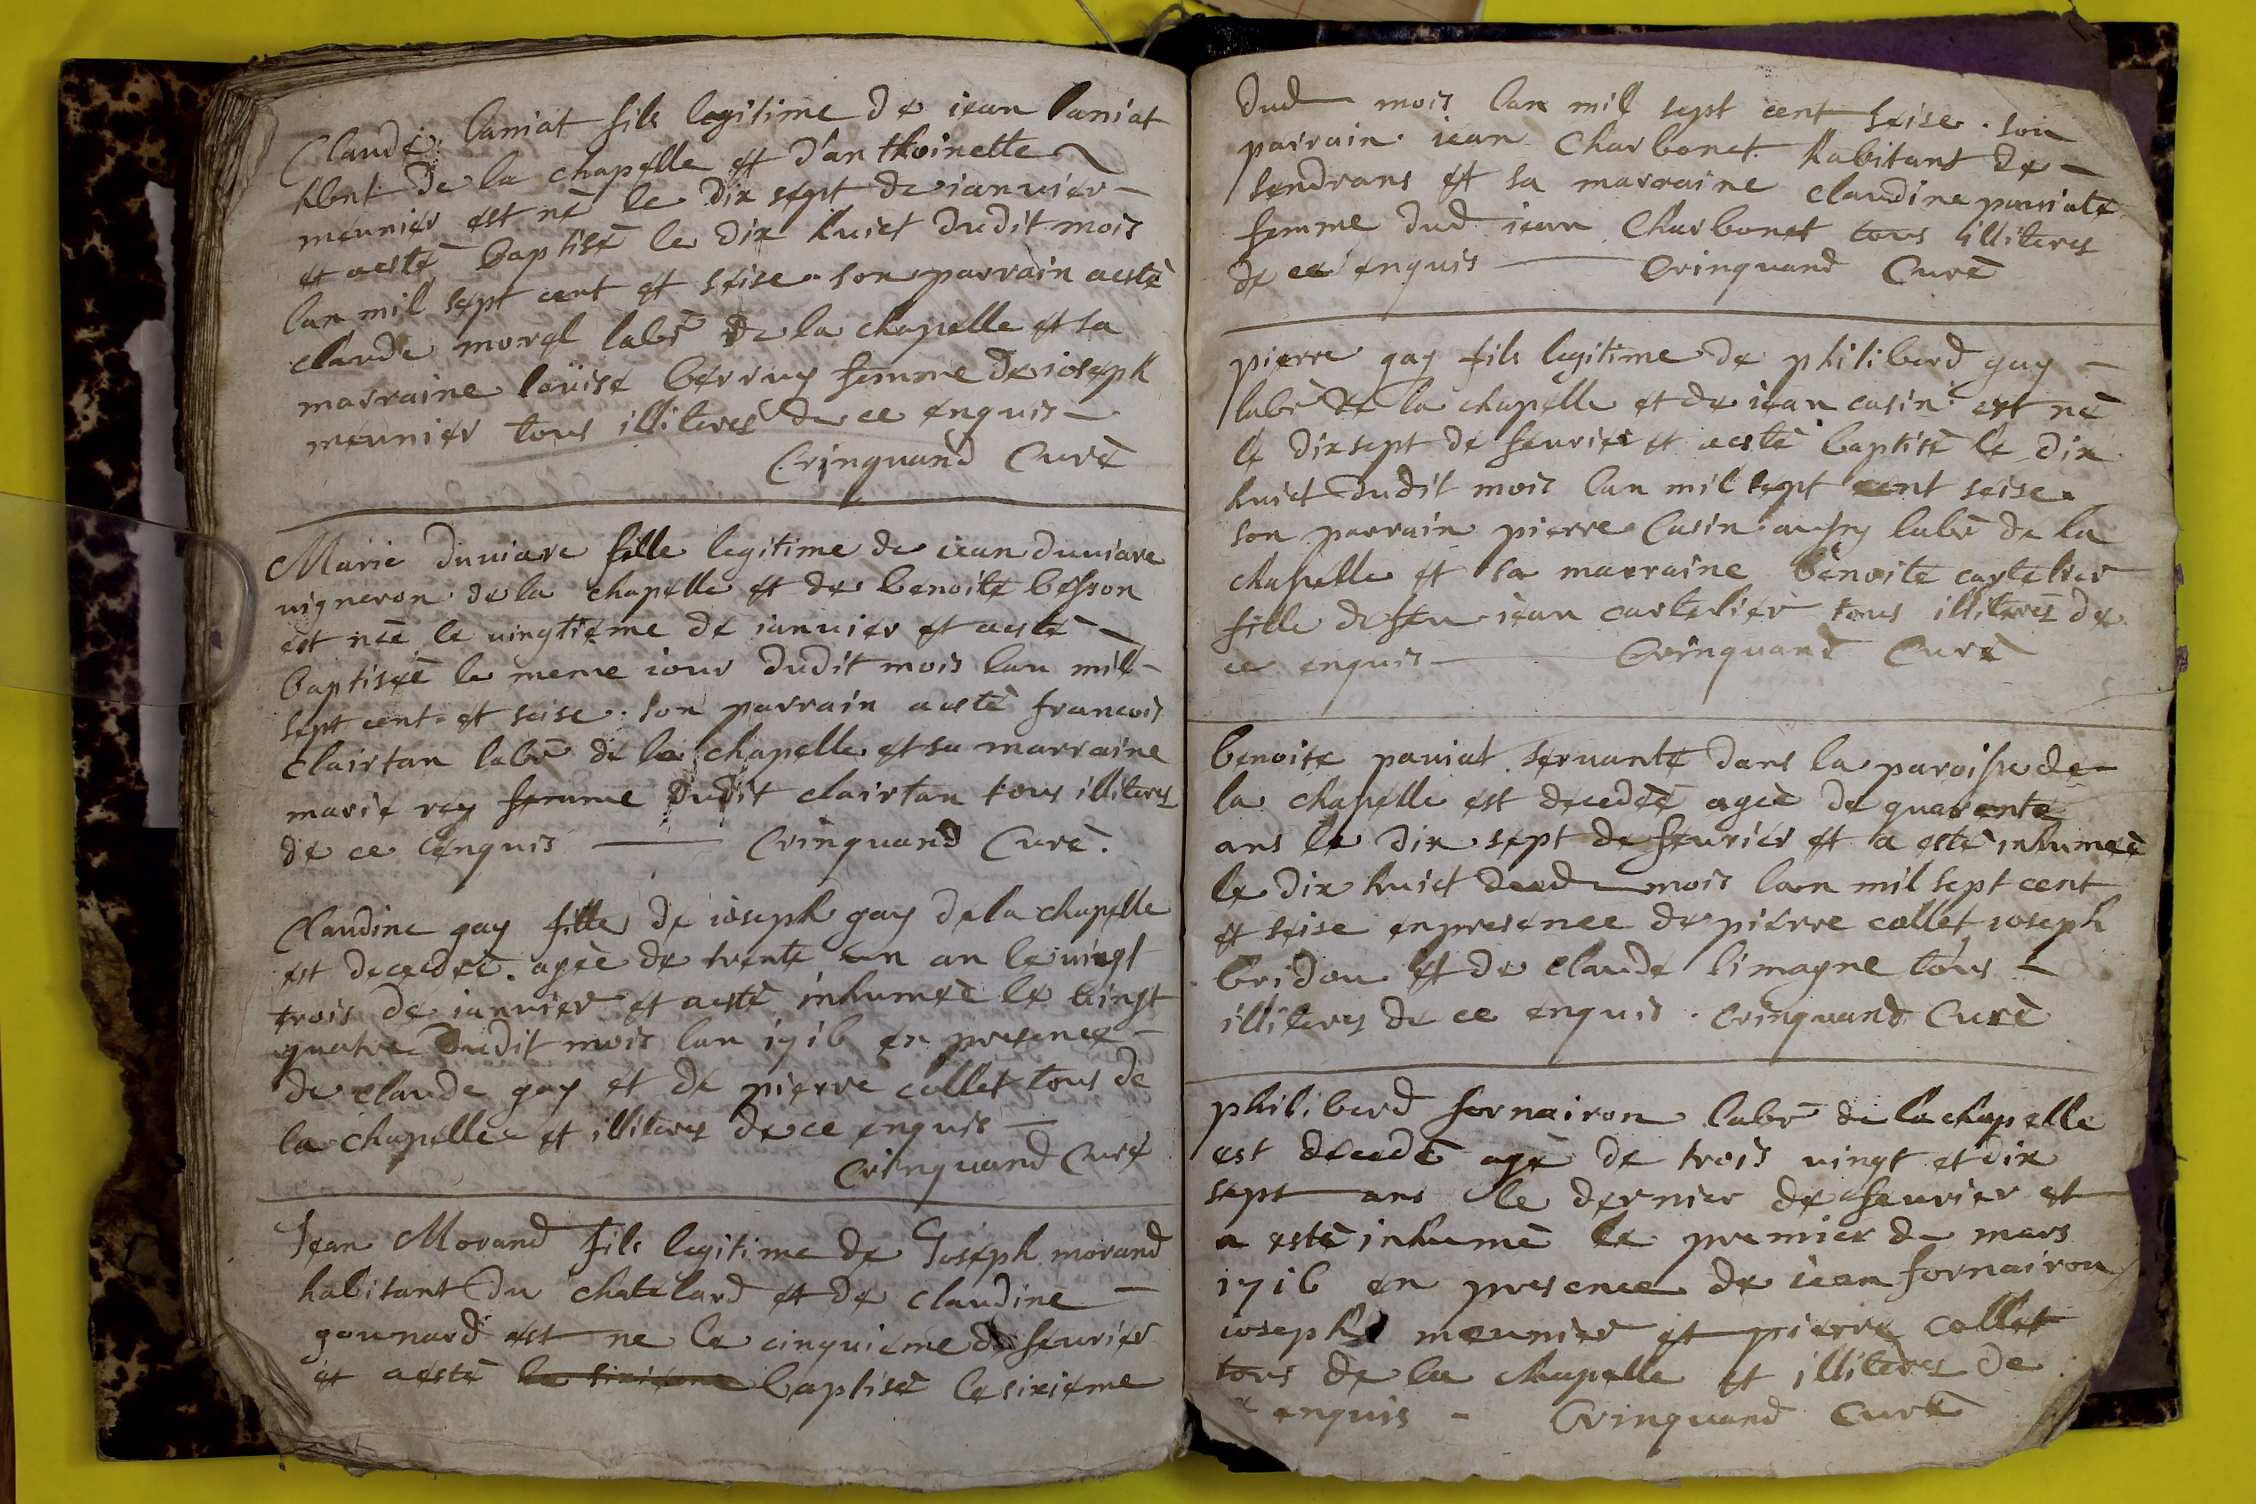 Claude Laniat fils legitime de iean Laniat
hbnt de la chapelle et d'anthoinette
meunier est né le dix sept de ianvier
et aesté baptisé le dix huict dudit mois
lan mil sept cent et seise. son parrain aesté
claude morel labr de la chapelle et sa
marraine loüise berruy femme de ioseph
meunier tous illiteres de ce enquis
Crinquand Curé
Marie duviare fille legitime de iean duviare
vigneron de la chapelle et de benoite besson
est née le vingtieme de ianvier et aesté
baptisée le meme iour dudit mois lan mil
sept cent et seise. son parrain aesté francois
clairtan labr de la chapelle et sa marraine
marie rey femme dudit clairtan tous illiteres
de ce enquis Crinquand Curé.
Claudine gay fille de ioseph gay de la chapelle
est decedeé. ageè de trente un an le vingt
trois de ianvier et aesté inhumeè le vingt
quatre dudit mois lan 1716 en presence
de claude gay et de pierre collet tous de
la chapelle et illiteres de ce enquis
Crinquand Curé
Jean Morand fils legitime de Joseph morand
habitant du chatelard et de claudine
gounard est ne le cinquieme de fevrier
et aesté le sixieme baptisé le sixieme
dud mois lan mil sept cent seise. son
parrain iean Charbonet habitant de
sendrans et sa marraine claudine paviate
femme dud iean Charbonet tous illiteres
de ce enquis Crinquand Curé
pierre gay fils legitime de philiberd gay
labr de la chapelle et de iean casin est né
le dix sept de fevrier et aesté baptisé le dix
huict dudit mois lan mil sept cent seise.
son parrain pierre Casin aussy labr de la
chapelle et sa marraine benoite cartelier
fille de feu iean cartelier tous illiteres de
ce enquis Crinquand Curé
benoite paviat servante dans la paroisse de
la chapelle est decedeé ageè de quarente
ans le dix sept de fevrier et a esté inhumeé
le dix huict dud mois lan mil sept cent
et seise en presence de pierre collet ioseph
bridon et de claude limagne tous
illiteres de ce enquis. Crinquand Curé
philiberd fornairon labr de la chapelle
est decedé agé de trois vingt et dix
sept ans le dernier de fevrier et
a esté inhumé le premier de mars
1716 en presence de iean fornairon
ioseph meunier et pierre collet
tous de la chapelle et illiteres de
ce enquis Crinquand Curé